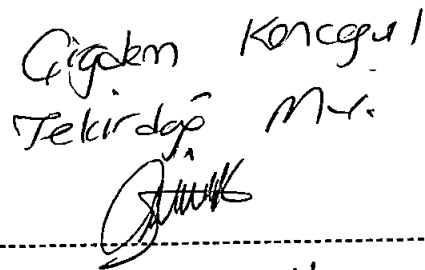 Çigdem Koncagul
Tekirdağ Mv.